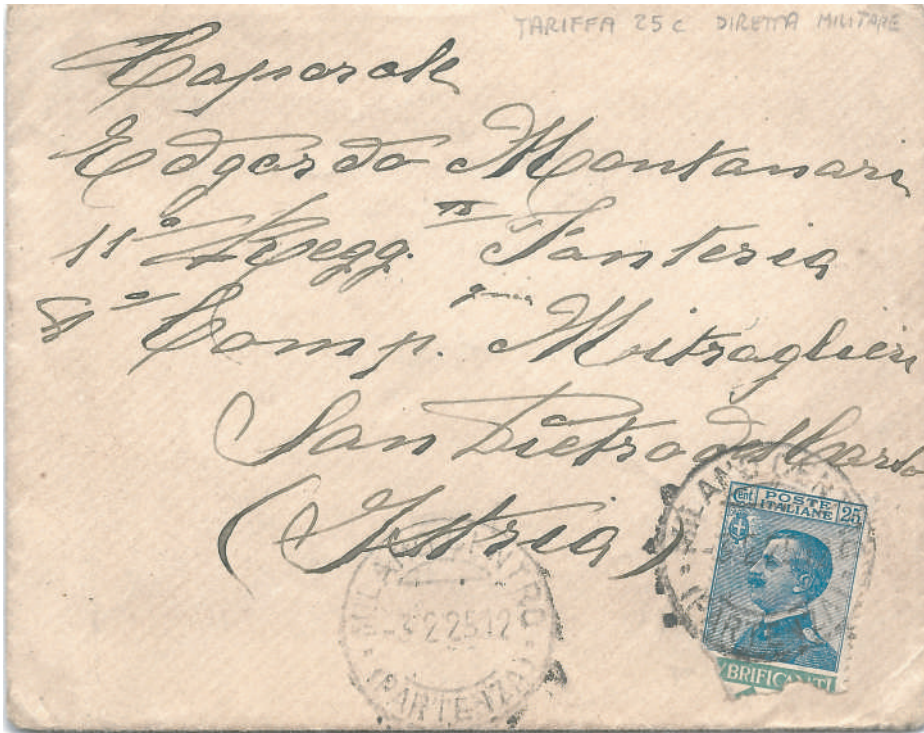 TARIFFA 25 c DIRETTA MILITARE
Caporale
Edgardo Montanari
11° Regg. Fanteria
Comp. Mitraglieri
San Pietro del Carso
(Istria)
MILANO CENTRO
-3.2.25.12
(PARTENZA)
MILANO CEN
Cent POSTE ITALIANE 25
BRIFICANTI